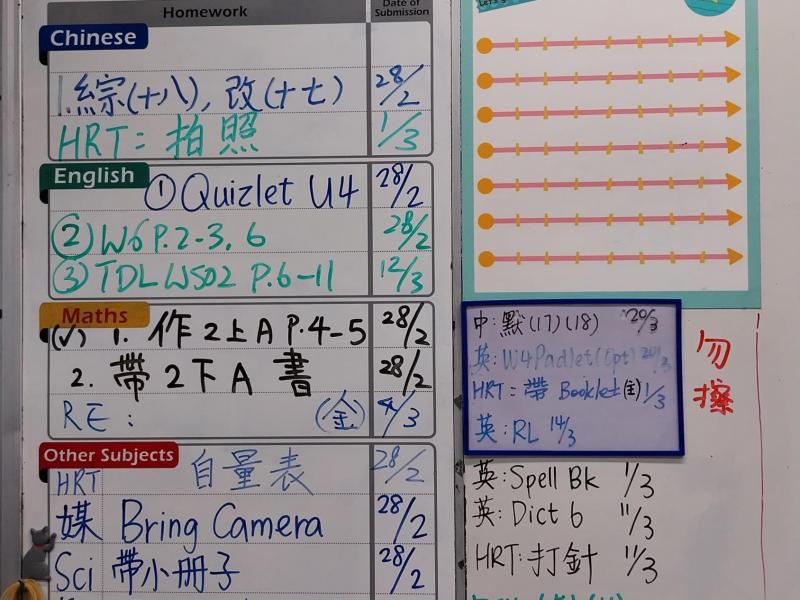 Homework
Date of Submission
Chinese
1.綜(十八), 改(十七) 28/2
HRT: 拍照 1/3
English
① Quizlet U4 28/2
② W6 P.2-3, 6 28/2
③ TDL WS02 P.6-11 12/3
Maths
(✓) 1. 作2上A P.4-5 28/2
2. 帶2下A書 28/2
RE: (金) 4/3
Other Subjects
HRT 自量表 28/2
媒 Bring Camera 28/2
Sci 帶小冊子 28/2
中:默(17)(18) 20/3
英:W4 Padlet (Opt)
HRT: 帶 Booklet 1/3
英:RL 14/3
勿擦
英:Spell Bk 1/3
英:Dict 6 11/3
HRT:打針 11/3